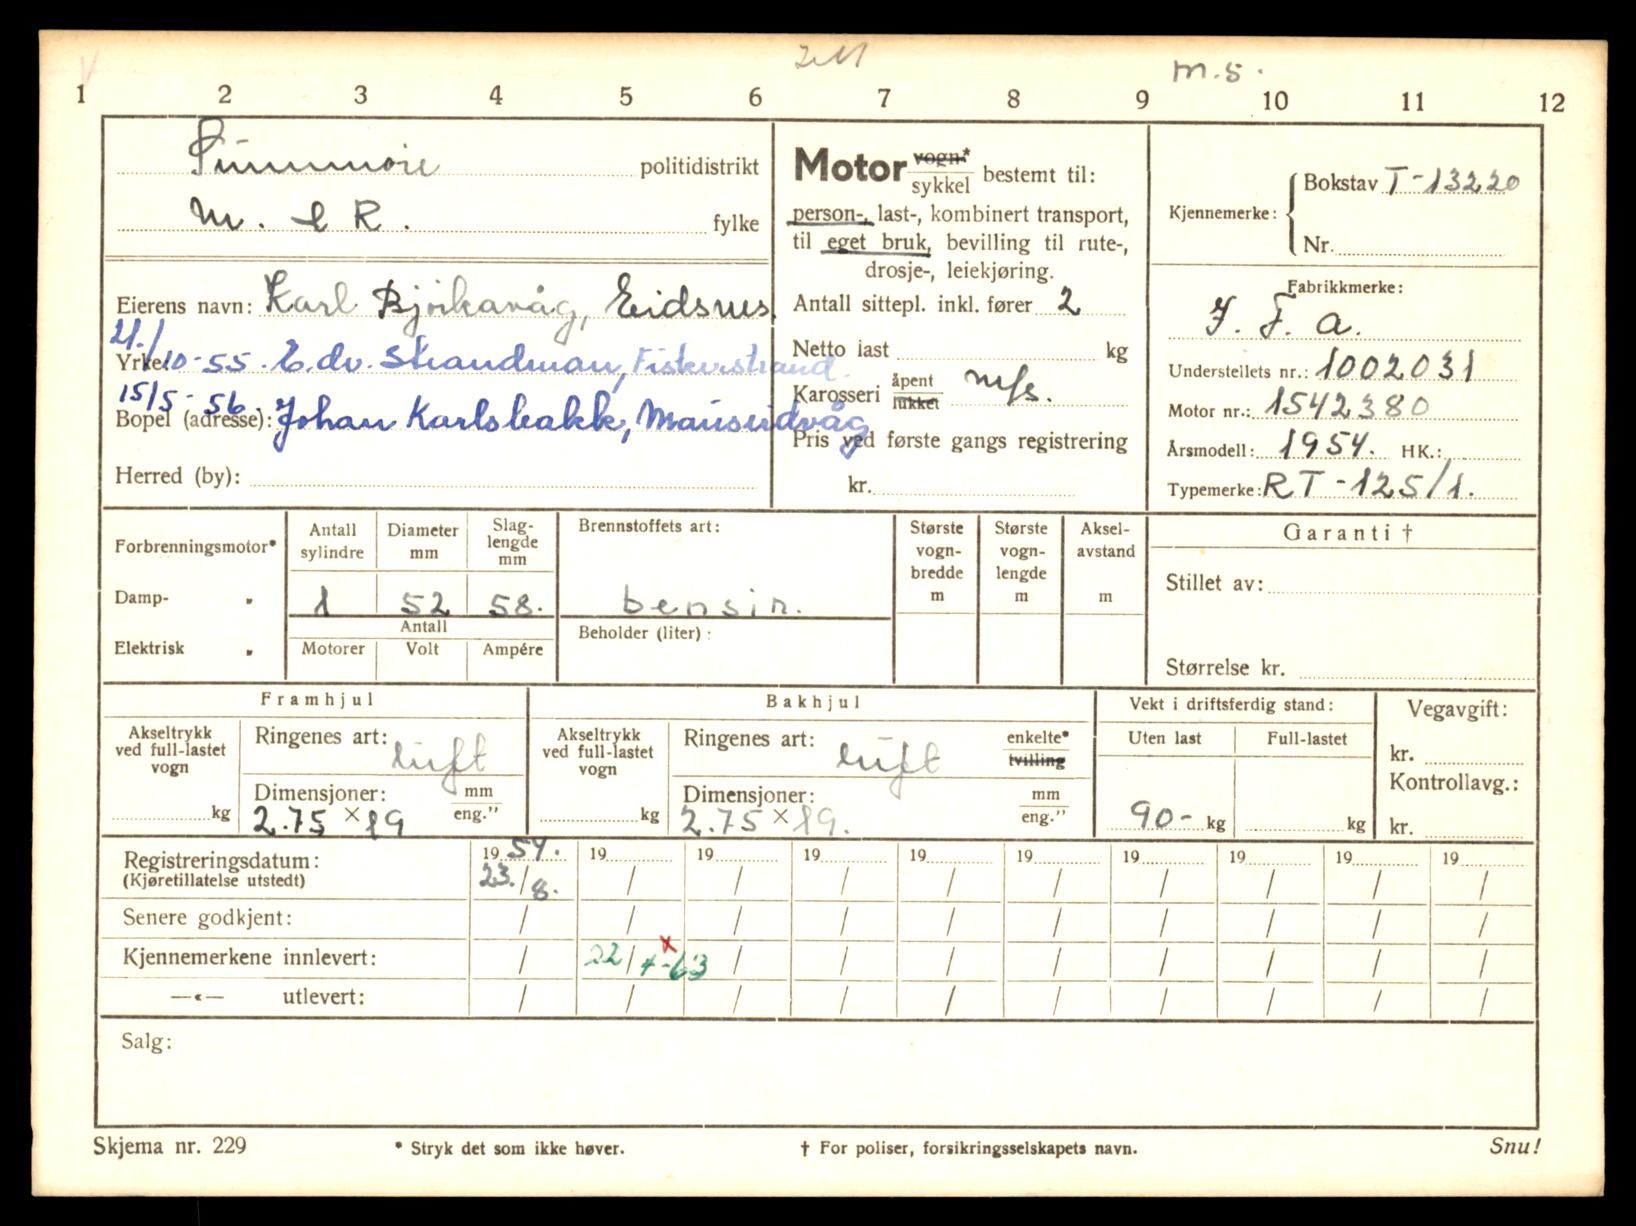 m.s.
1 2 3 4 5 6 7 8 9 10 11 12
Sunnmøre politidistrikt
M. & R. fylke
Eierens navn: Karl Bjørkavåg, Eidsnes.
21./10-55. Edv. Strandman, Fiskerstrand.
Yrke
15/5-56. Johan Karlsbakk, Mauseidvåg
Bopel (adresse):
Herred (by):
Motor vogn* sykkel bestemt til:
person-, last-, kombinert transport,
til eget bruk, bevilling til rute-,
drosje-, leiekjøring.
Antall sittepl. inkl. fører 2
Netto last kg
Karosseri åpent lukket m/s.
Pris ved første gangs registrering
kr.
Kjennemerke: Bokstav T-13220
Nr.
Fabrikkmerke:
J. F. A.
Understellets nr.: 1002031
Motor nr.: 1542380
Årsmodell: 1954. HK.:
Typemerke: RT-125/1.
Forbrenningsmotor*
Damp- "
Elektrisk "
Antall sylindre
Diameter mm
Slag-lengde mm
1 52 58.
Antall
Motorer Volt Ampére
Brennstoffets art:
bensin.
Beholder (liter):
Største vogn-bredde m
Største vogn-lengde m
Aksel-avstand m
Garanti †
Stillet av:
Størrelse kr.
Framhjul
Akseltrykk ved full-lastet vogn
kg
Ringenes art: luft
Dimensjoner: mm eng."
2.75 × 19
Bakhjul
Akseltrykk ved full-lastet vogn
kg
Ringenes art: luft enkelte* tvilling
Dimensjoner: mm eng."
2.75 × 19.
Vekt i driftsferdig stand:
Uten last Full-lastet
90- kg kg
Vegavgift:
kr.
Kontrollavg.:
kr.
Registreringsdatum: 19 54. 19 19 19 19 19 19 19 19 19
(Kjøretillatelse utstedt) 23./8. / / / / / / / / /
Senere godkjent: / / / / / / / / / /
Kjennemerkene innlevert: / 22/4-63 x / / / / / / / /
—«— utlevert: / / / / / / / / / /
Salg:
Skjema nr. 229 * Stryk det som ikke høver. † For poliser, forsikringsselskapets navn. Snu!